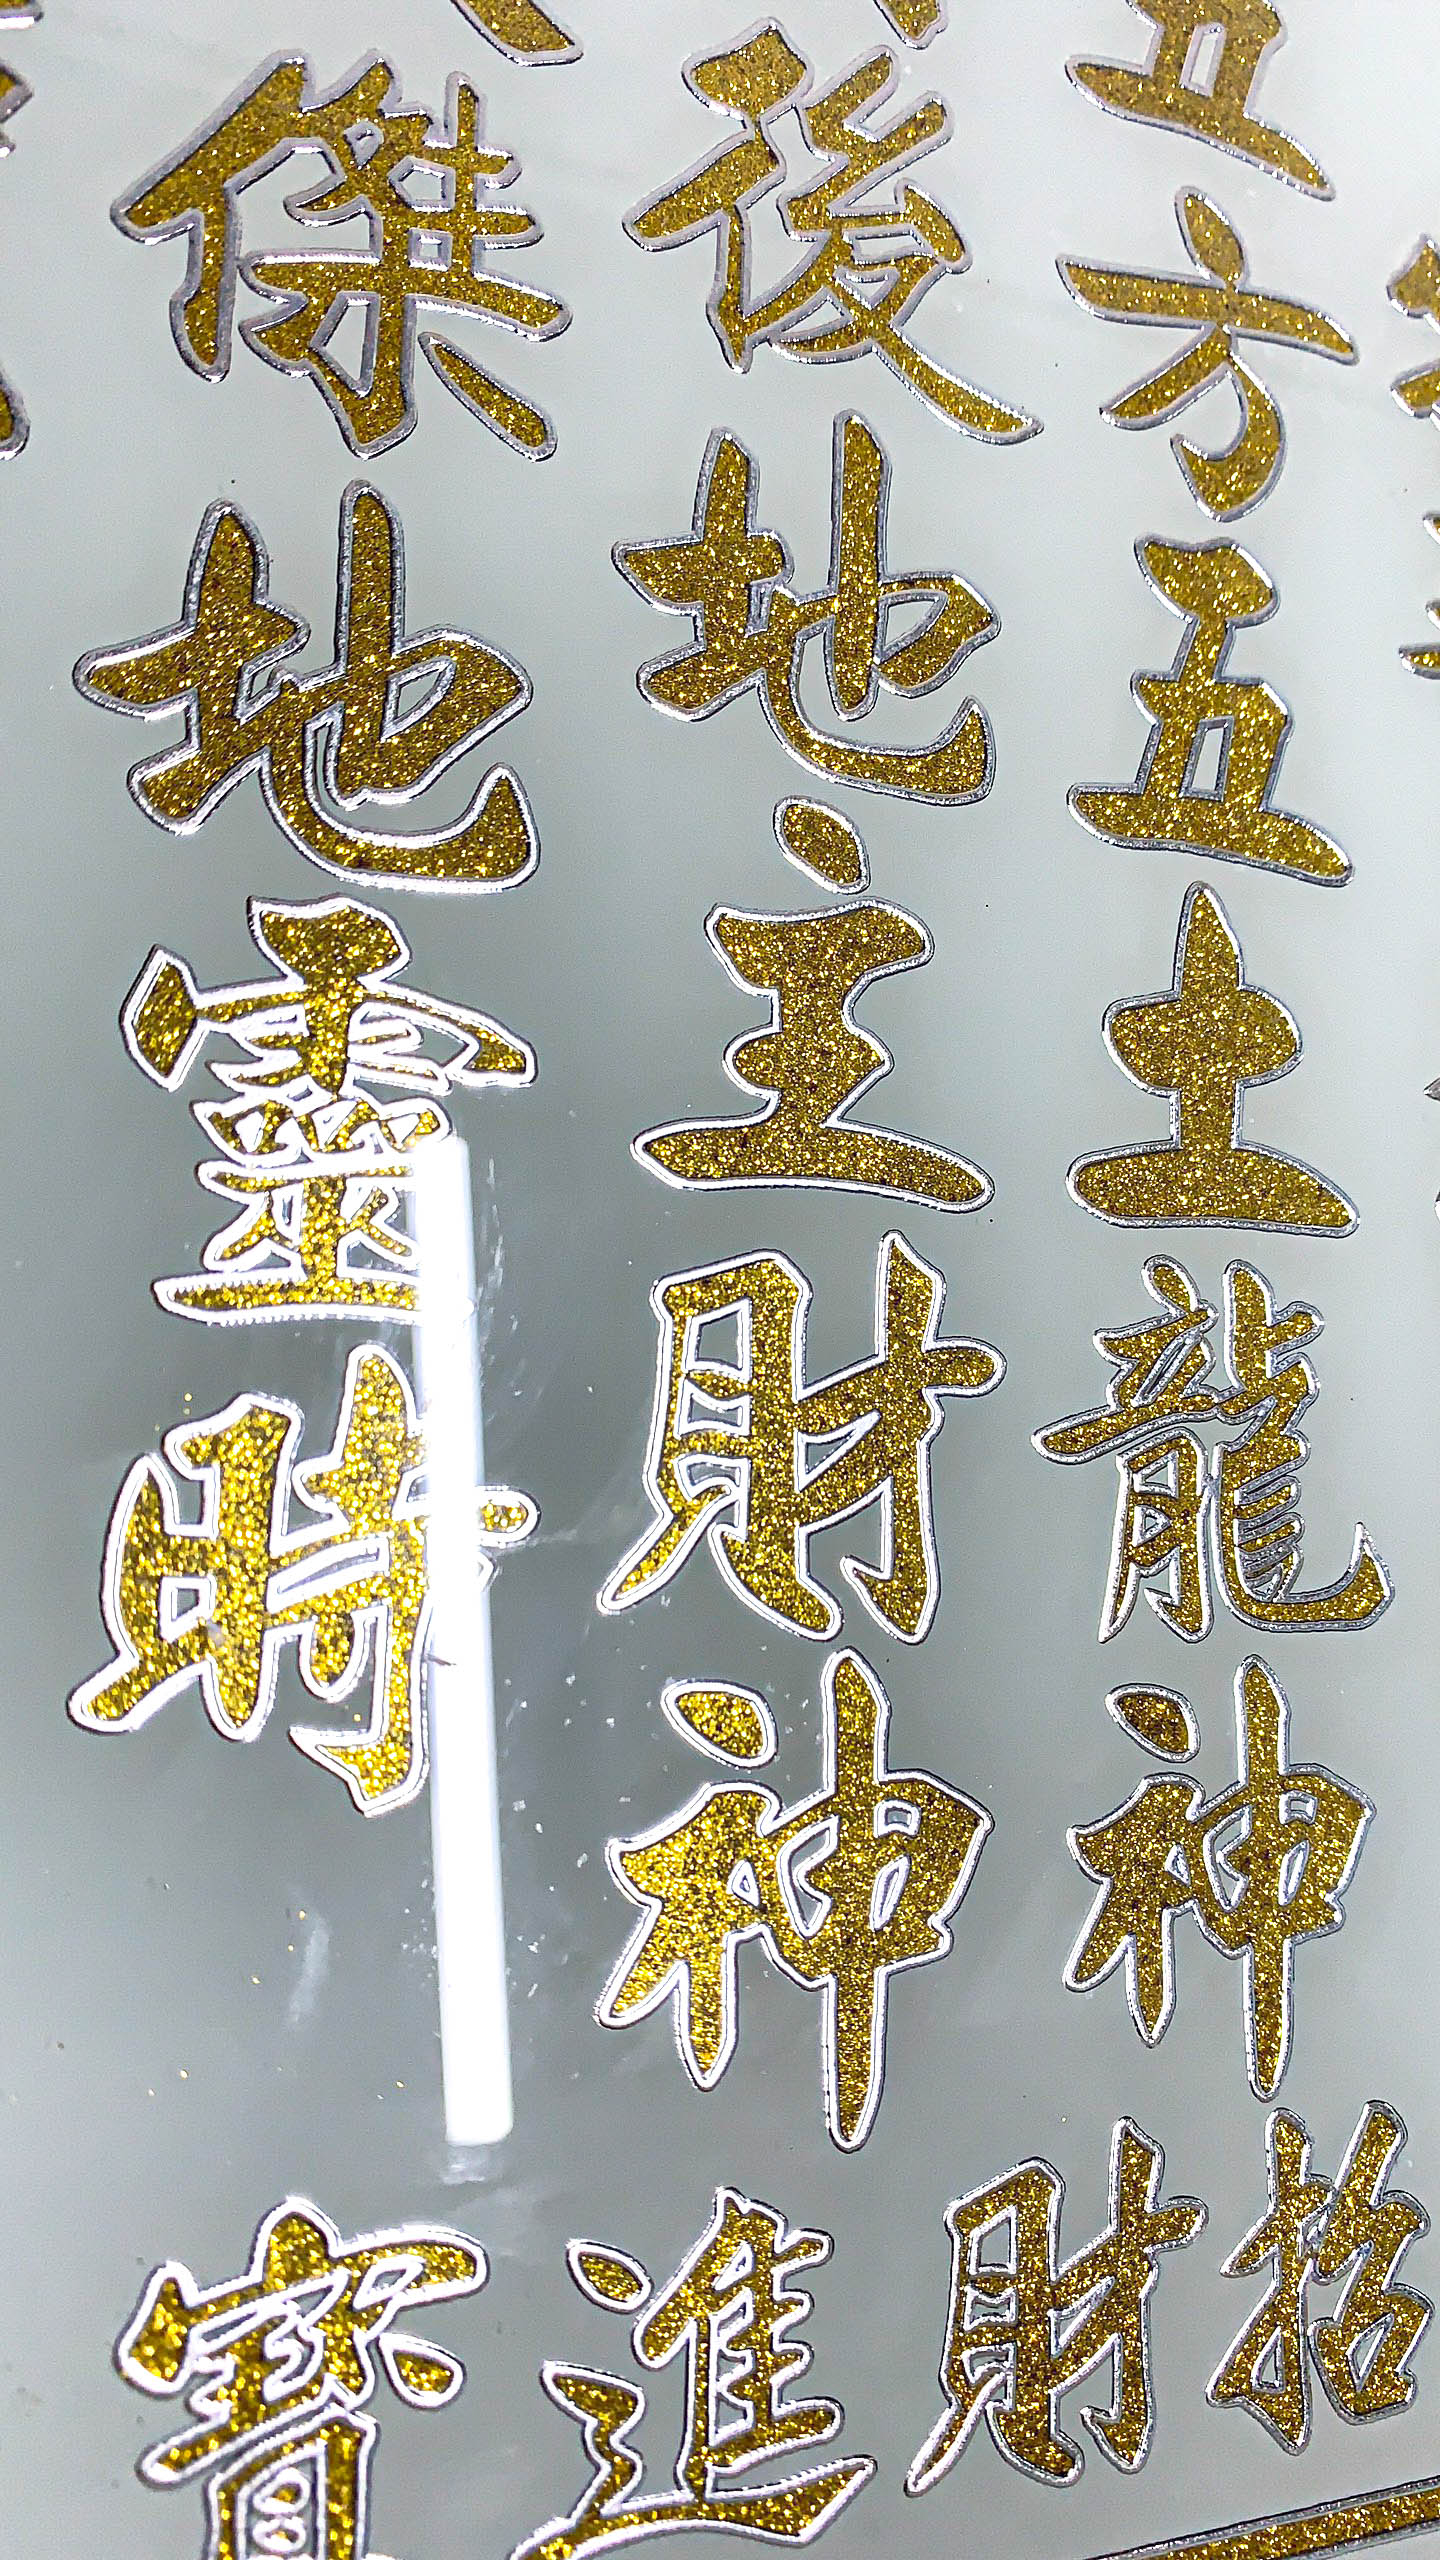 五方五土龍神
後地主財神
傑地靈時
招財進寶